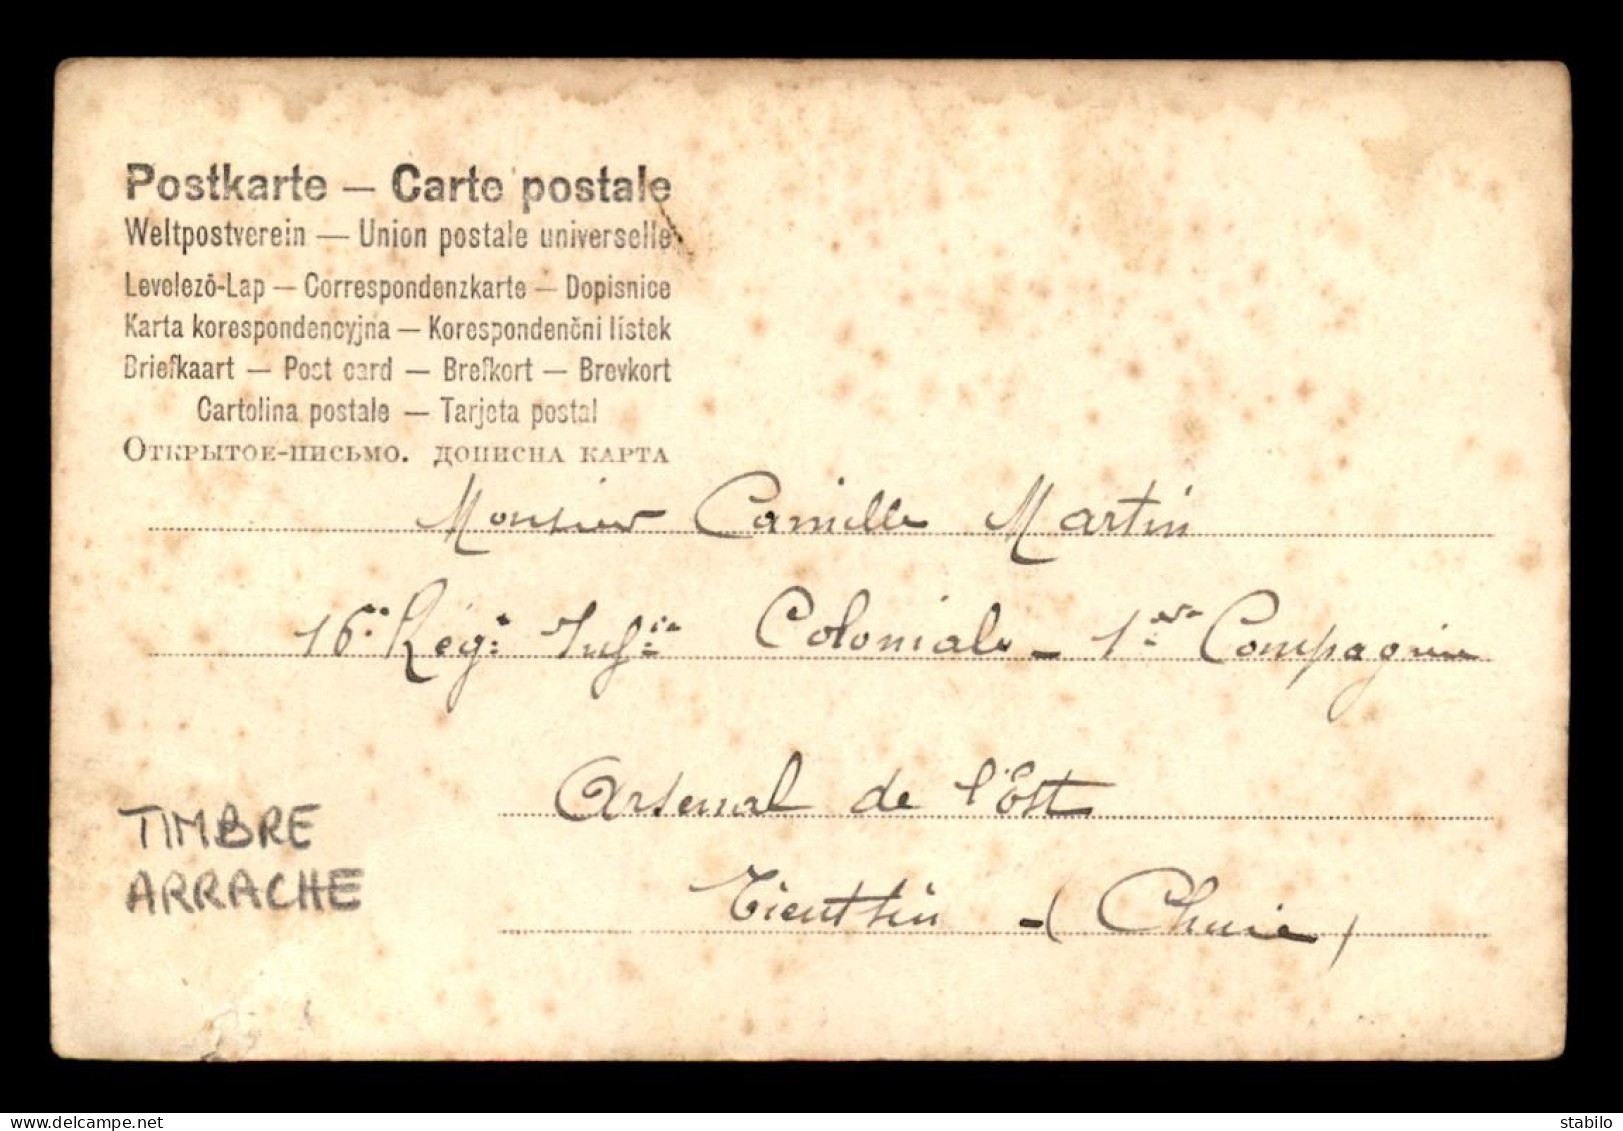 Postkarte — Carte postale
Weltpostverein — Union postale universelle
Levelező-Lap — Correspondenzkarte — Dopisnice
Karta korespondencyjna — Korespondenční lístek
Briefkaart — Post card — Brefkort — Brevkort
Cartolina postale — Tarjeta postal
Открытое-письмо. дописна карта
Monsieur Camille Martin
16e Rég: Infie Coloniale – 1ère Compagnie
Arsenal de l'Est
Tientsin – (Chine)
TIMBRE
ARRACHE
delcampe.net
stabilo